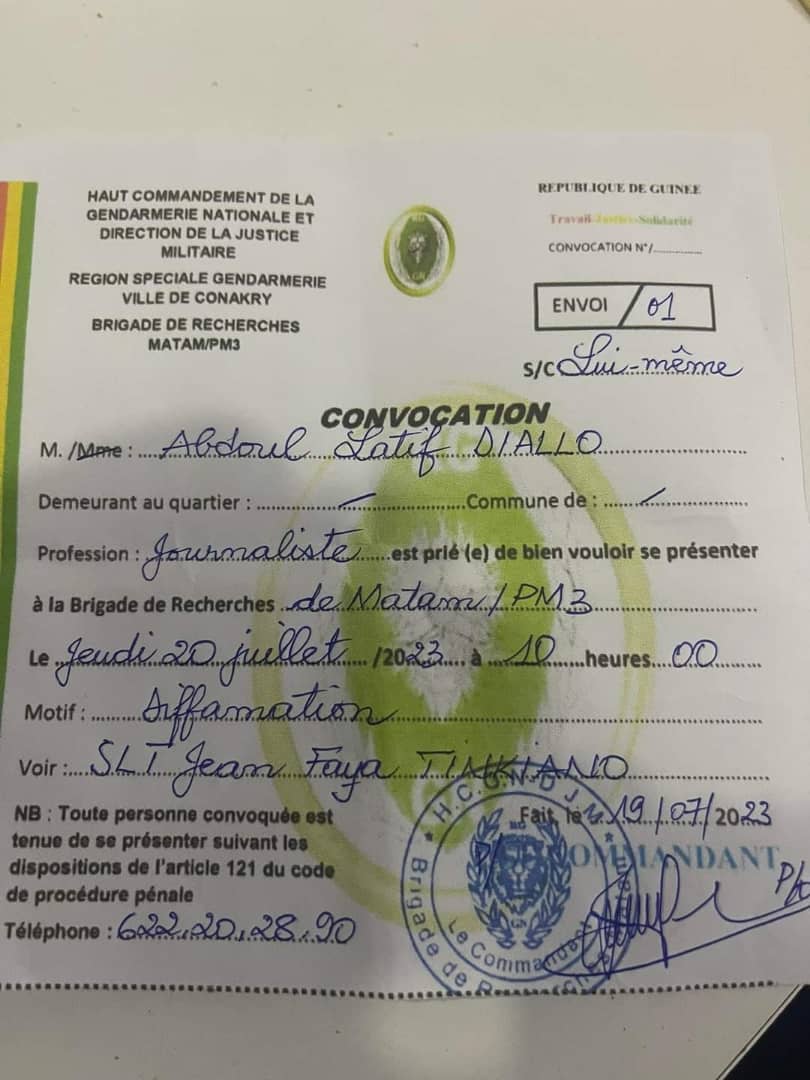 HAUT COMMANDEMENT DE LA
GENDARMERIE NATIONALE ET
DIRECTION DE LA JUSTICE
MILITAIRE
REGION SPECIALE GENDARMERIE
VILLE DE CONAKRY
BRIGADE DE RECHERCHES
MATAM/PM3
RG
GN
REPUBLIQUE DE GUINEE
Travail-Justice-Solidarité
CONVOCATION N°/..............
ENVOI / 01
S/C Lui-même
CONVOCATION
M. /Mme : Abdoul Latif DIALLO
Demeurant au quartier : — Commune de : —
Profession : Journaliste est prié (e) de bien vouloir se présenter
à la Brigade de Recherches de Matam / PM3
Le Jeudi 20 juillet /2023 à 10 heures 00
Motif : Diffamation
Voir : SLT Jean Faya TINKIANO
NB : Toute personne convoquée est
tenue de se présenter suivant les
dispositions de l'article 121 du code
de procédure pénale
Téléphone : 622.20.28.90
Fait, le 19/07/2023
COMMANDANT
P/
H.C.G.N-D.J.M
Brigade de Recherches
Le Commandant
RG
GN